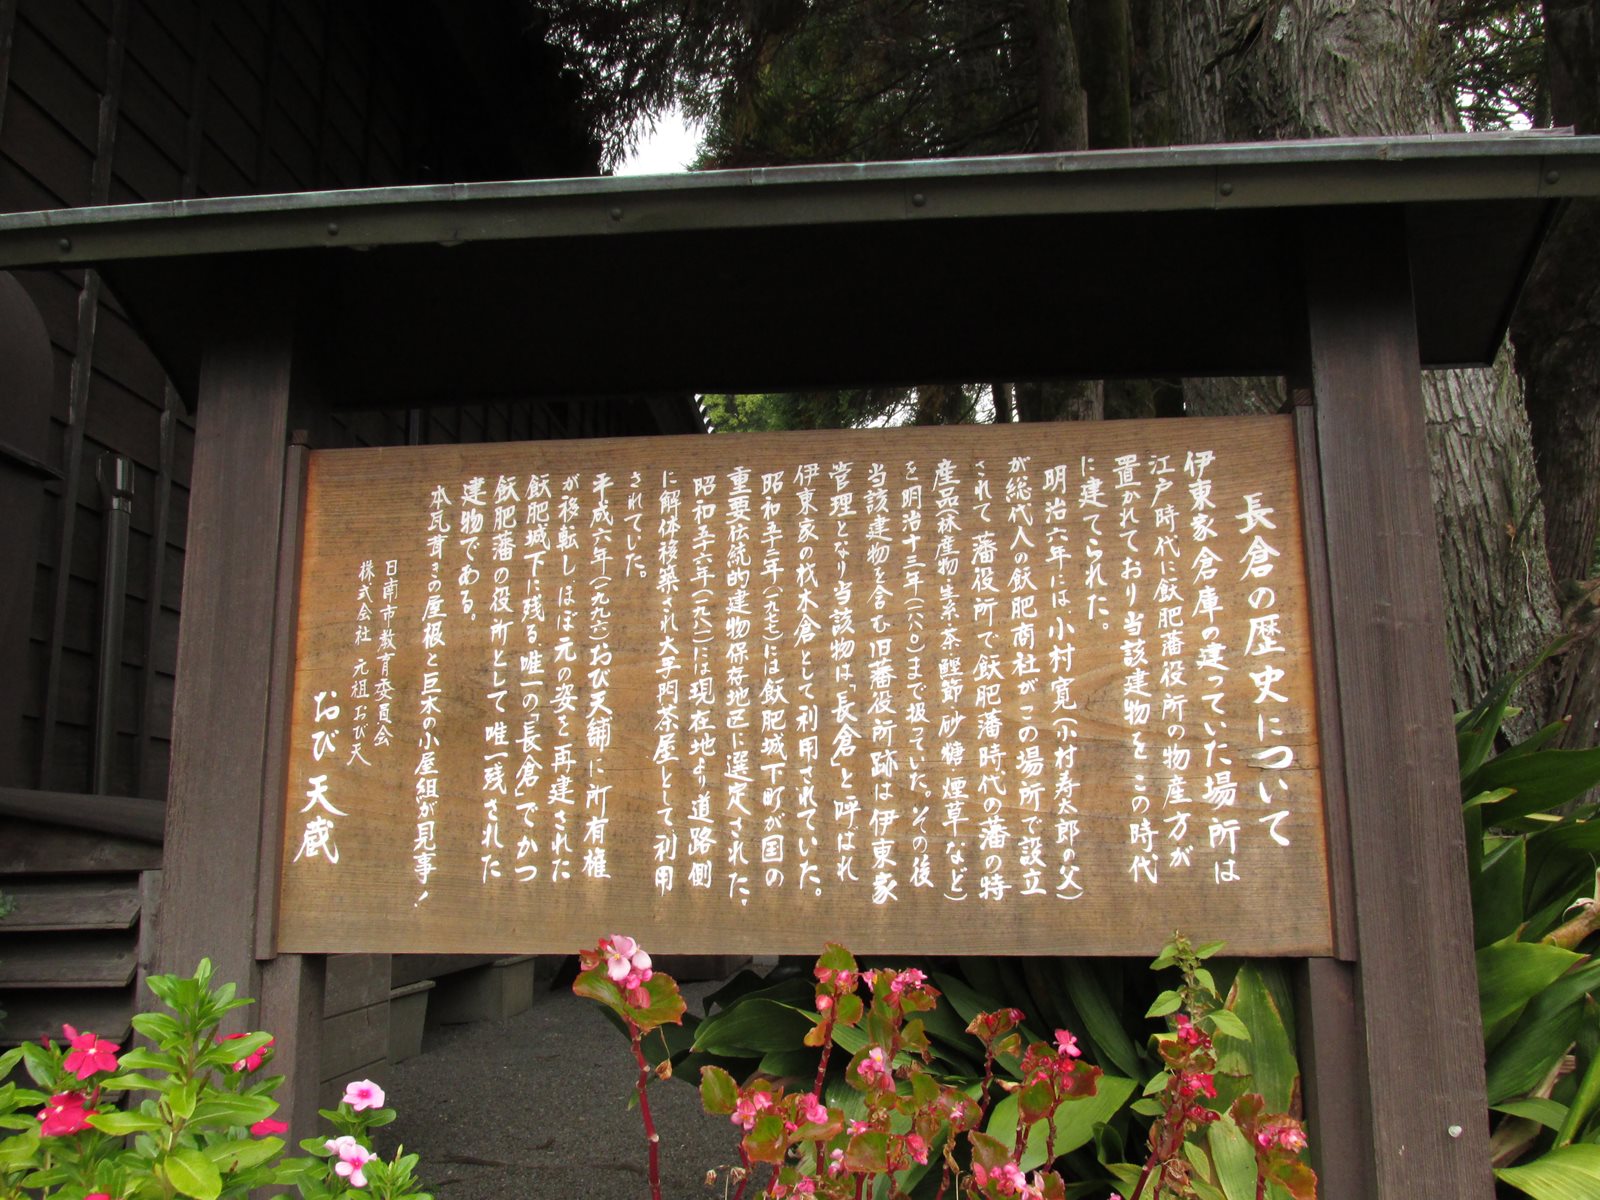 長倉の歴史について
伊東家倉庫の建っていた場所は
江戸時代に飫肥藩役所の物産方が
置かれており当該建物をこの時代
に建てられた。
明治六年には小村寛(小村寿太郎の父)
が総代人の飫肥商社がこの場所で設立
されて藩役所で飫肥藩時代の藩の特
産品(林産物・生糸・茶・鰹節・砂糖・煙草など)
を明治十三年(一八八〇)まで扱っていた。その後
当該建物を含む旧藩役所跡は伊東家
管理となり当該物は「長倉」と呼ばれ
伊東家の材木倉として利用されていた。
昭和五十二年(一九七七)には飫肥城下町が国の
重要伝統的建物保存地区に選定された。
昭和五十六年(一九八一)には現在地より道路側
に解体移築され大手門茶屋として利用
されてした。
平成六年(一九九六)おび天舗に所有権
が移転しほぼ元の姿を再建された
飫肥城下に残る唯一の「長倉」でかつ
飫肥藩の役所として唯一残された
建物である。
本瓦葺きの屋根と巨木の小屋組が見事!
日南市教育委員会
株式会社 元祖おび天
おび天蔵